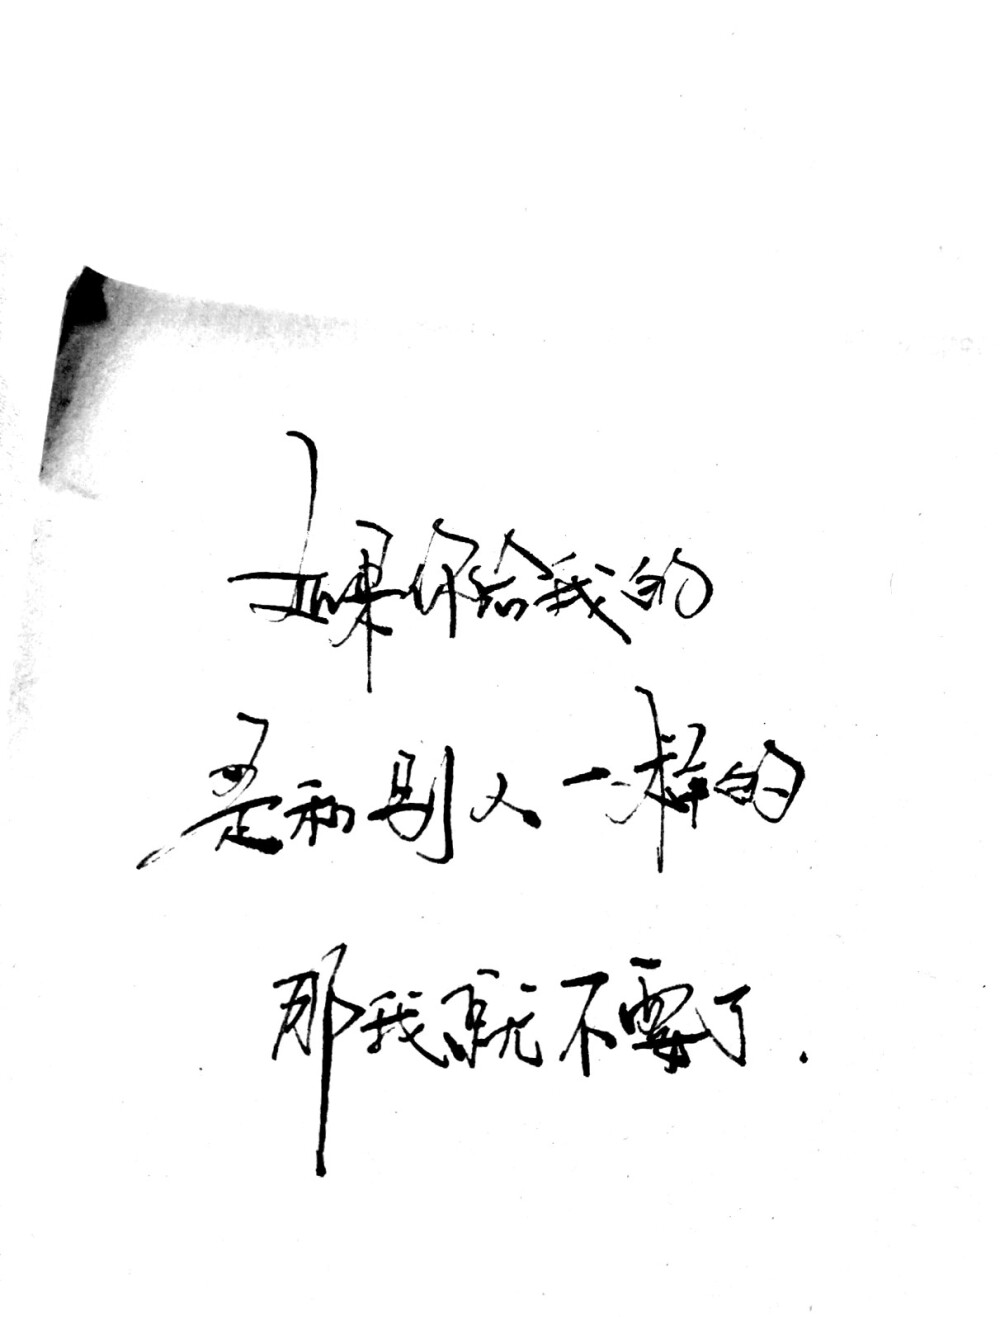 如果你给我的
是和别人一样的
那我就不要了.